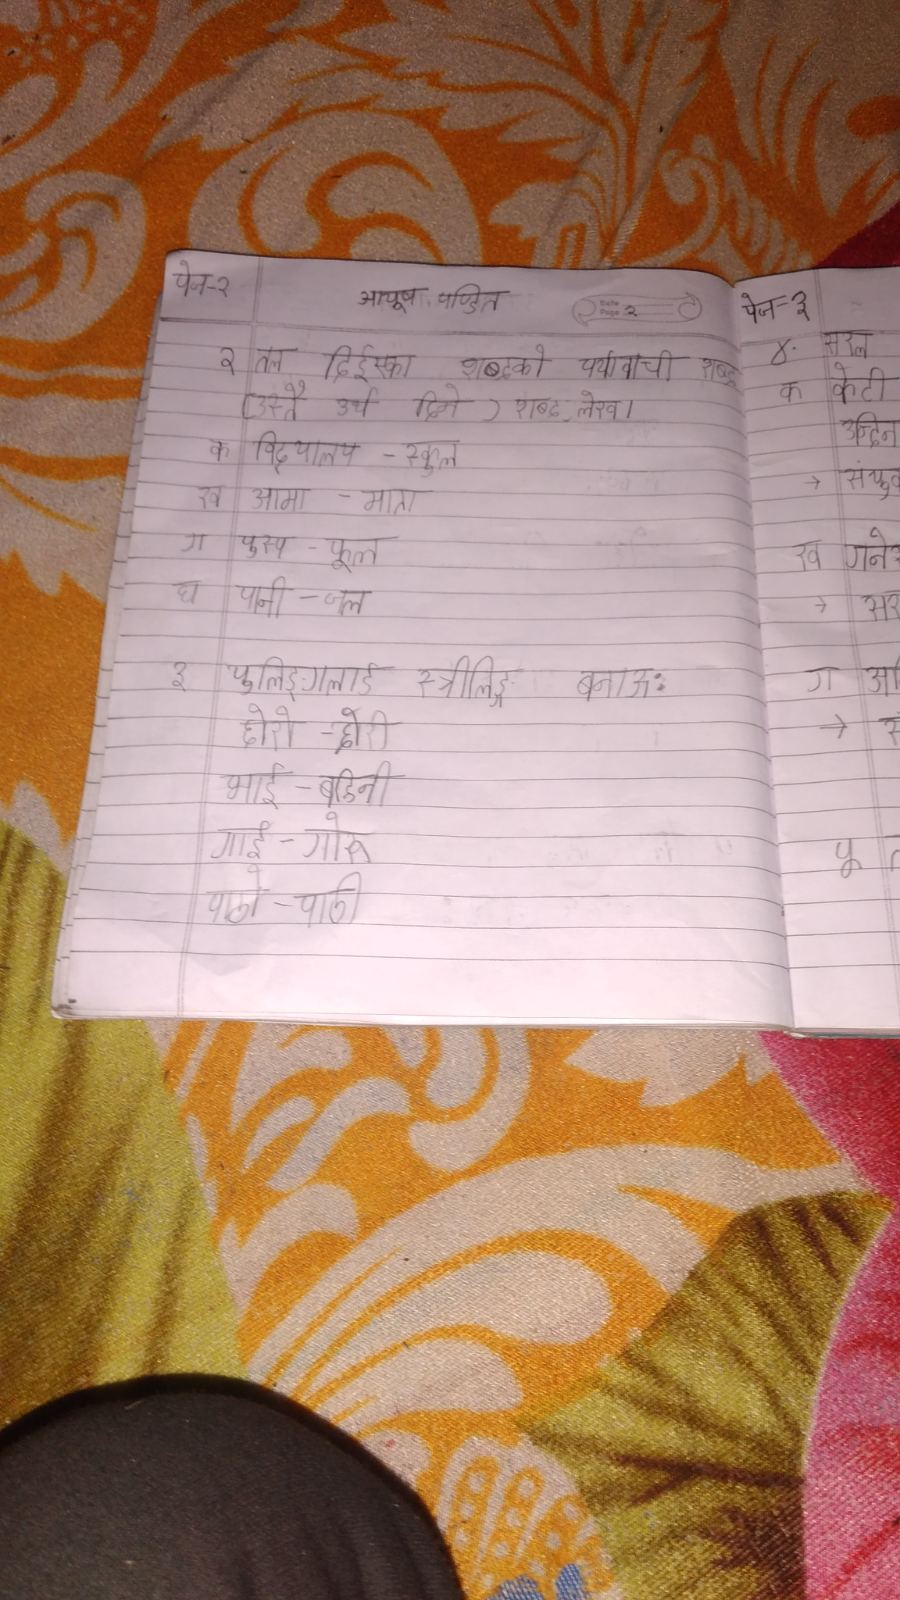 पेज-२
आयूष पण्डित
Date
Page २
२ तल दिईस्का शब्दको पर्यावाची शब्द
(उस्तै उर्थ दिने) शब्द लेख।
क विद्यालय - स्कुल
ख आमा - माता
ग पुस्प - फूल
घ पानी - जल
३ पुलिङ्गलाई स्त्रीलिङ्ग बनाऊ:
छोरो - छोरी
भाई - बहिनी
गाई - गोरू
पाठो - पाठी
पेज-३
४. सरल
क केटी
→
ख गनेस
→
ग
→